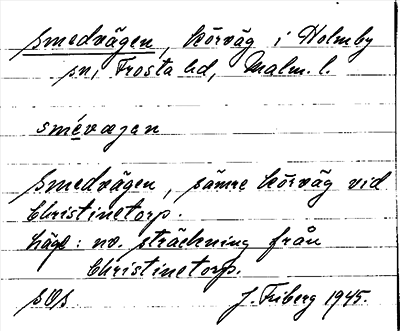 Smedvägen, körväg i Holmby
sn, Frosta hd, Malm. l.
smévægen
Smedvägen, sämre körväg vid
Christinetorp.
Läge: nv. sträckning från
Christinetorp.
SOs J. Friberg 1945.